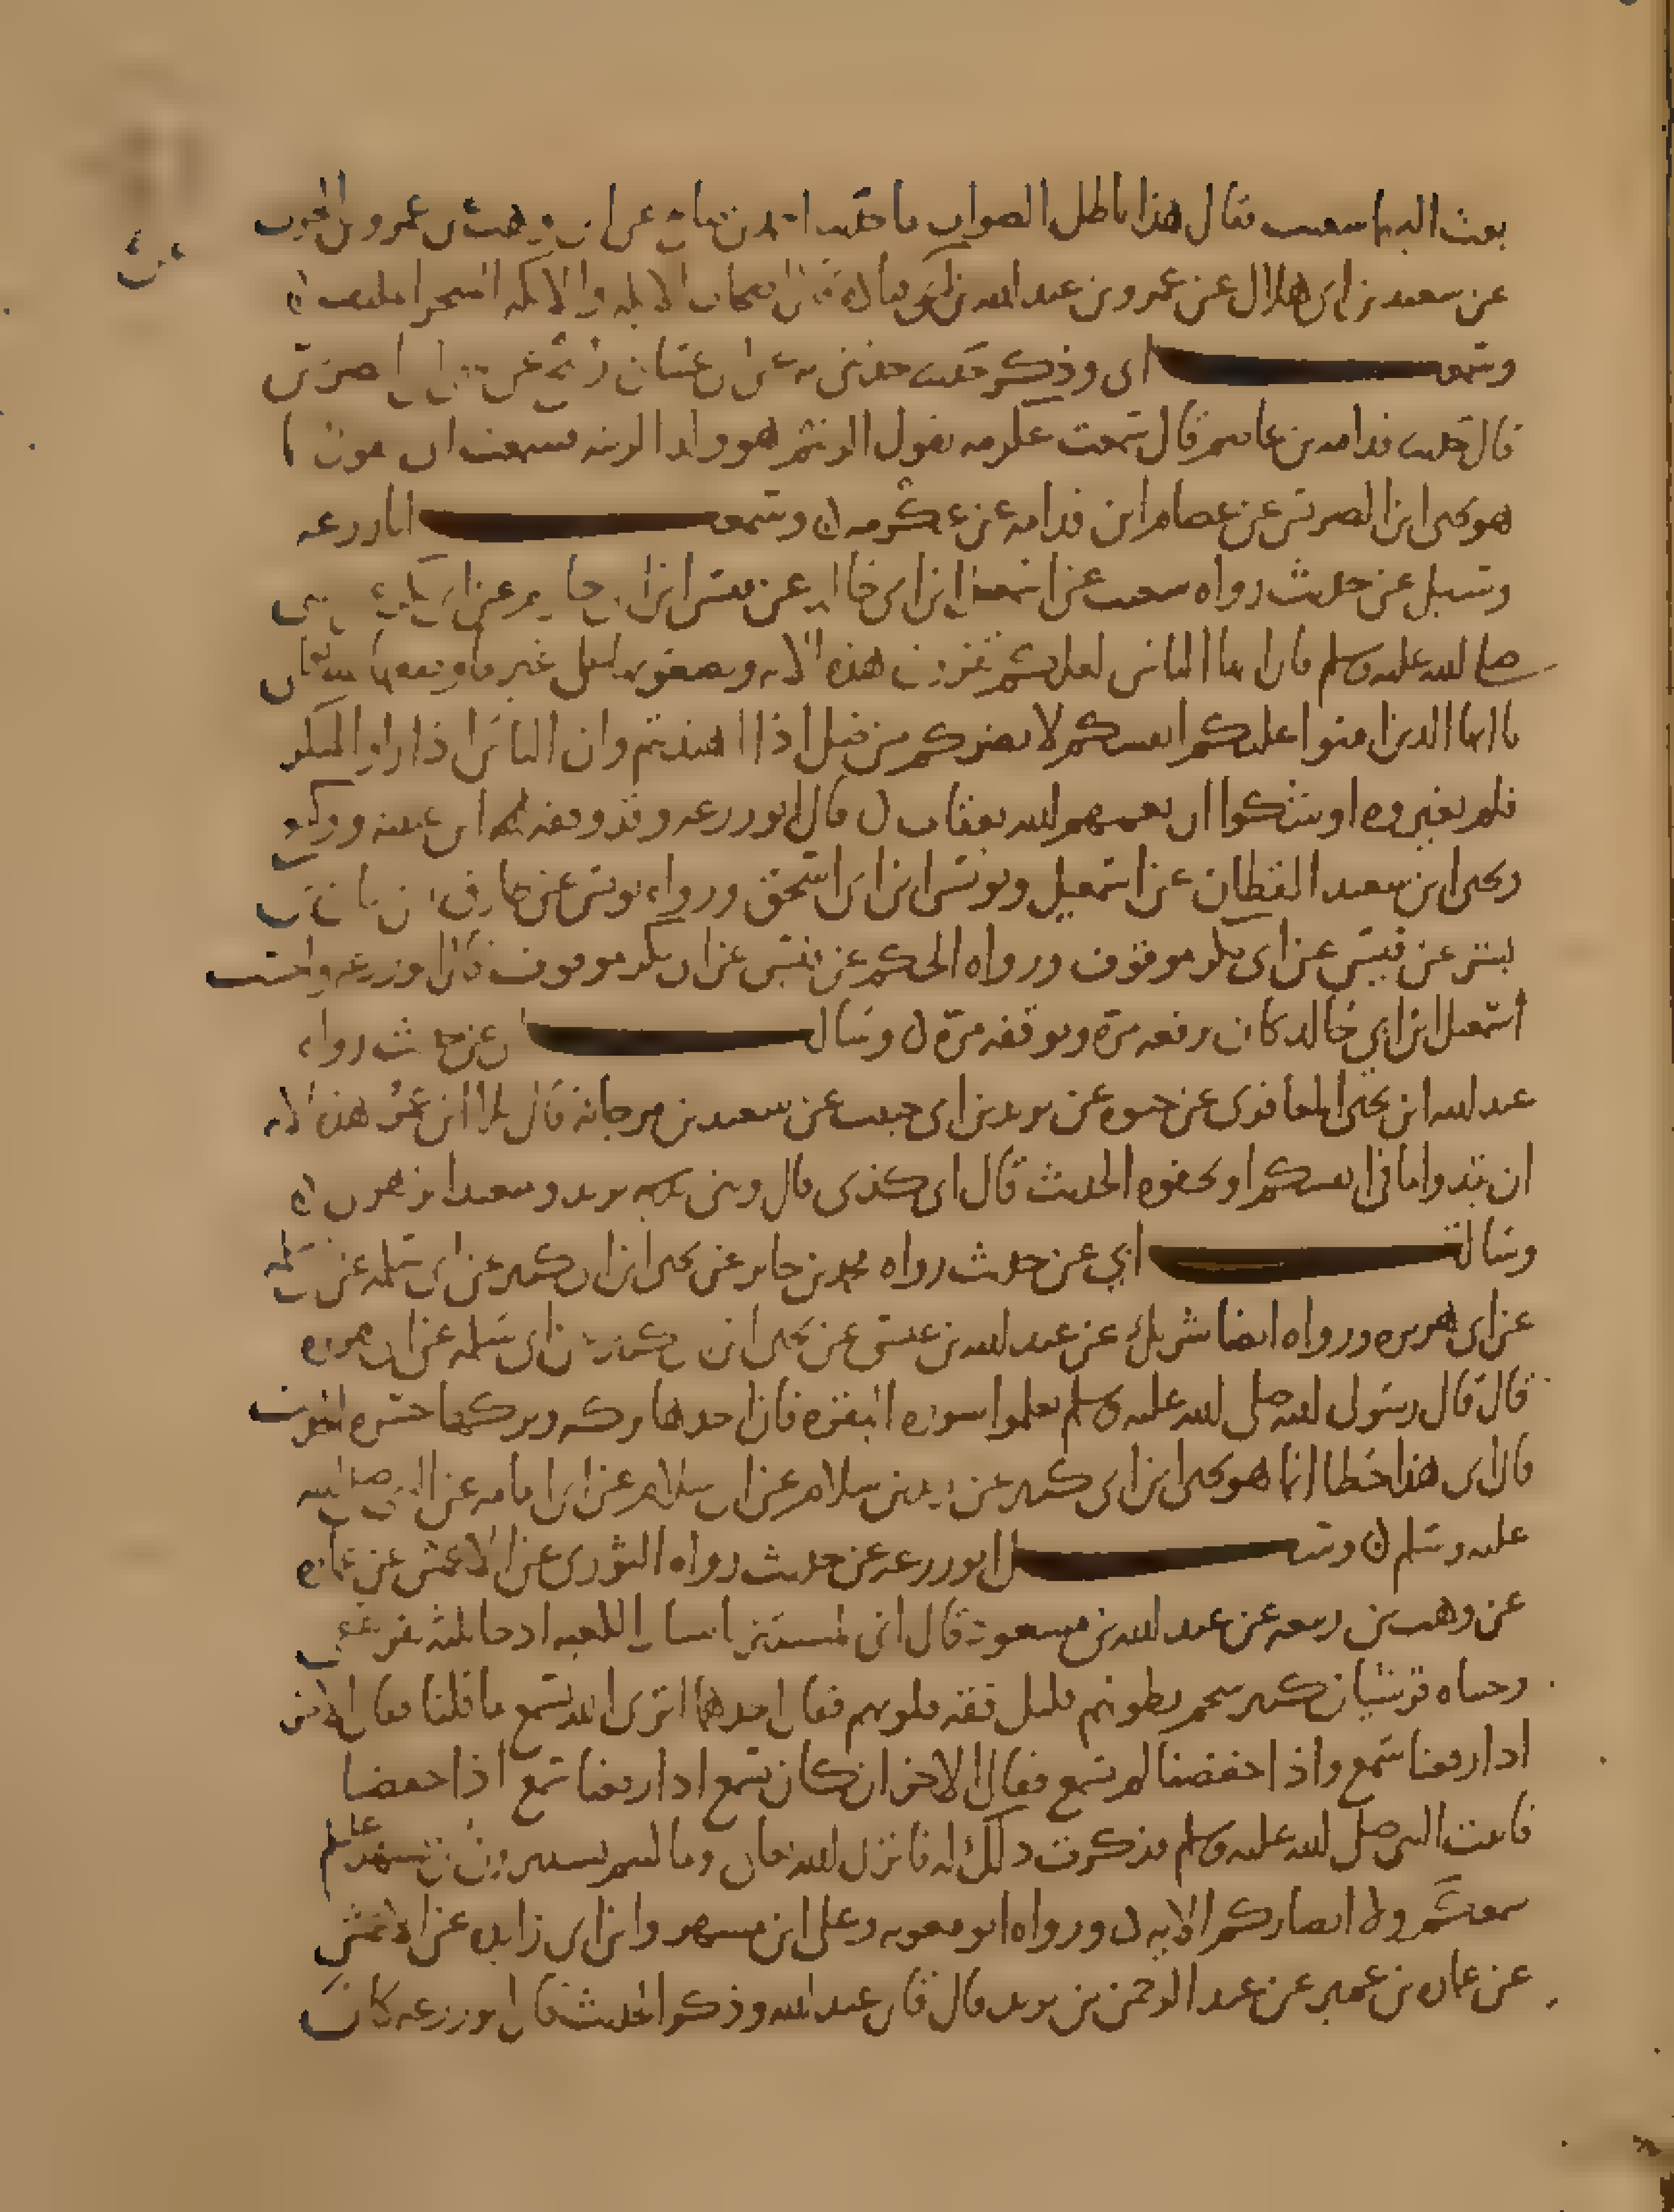 بعث اليهما شعيب فقال هذا باطل الصواب ما حدثنا احمد بن صالح عن ابن وهب عن عمرو بن الحرث
عن سعيد بن ابى هلال عن عمرو بن عبد الله قال اصحاب الايكه والايكه الشجر الملتف
وسمعت ابى وذكر حديث حدثنى به عن
قال حدثنا قدامه بن عاصم قال سمعت عكرمه يقول الزنيم هو ولد الزنيه فسمعت ابى يقول انما
هو يحيى ابن الضريس عن عصام ابن قدامه عن عكرمه وسمعت ابا زرعه
وسئل عن حديث رواه شعبه عن اسمعيل ابن ابى خالد عن قيس ابن ابى حازم عن ابى بكر عن النبى
صلى الله عليه وسلم قال يا ايها الناس لعلكم تقرون هذه الايه وتضعونها على غير ما وضعها الله تعالى
يا ايها الذين امنوا عليكم انفسكم لا يضركم من ضل اذا اهتديتم وان الناس اذا راوا المنكر
فلم يغيروه اوشكوا ان يعمهم الله بعقاب قال ابو زرعه وقد وقفه ابن عيينه ووكيع
ويحيى ابن سعيد القطان عن اسمعيل ويونس ابن ابى اسحق ورواه يونس عن طارق
عن قيس عن ابى بكر موقوف ورواه الحكم عن قيس عن ابى بكر موقوف قال ابو زرعه واحسب
اسمعيل ابن ابي خالد كان يرفعه مرة ويوقفه مرة وسالت ابى عن حديث رواه
عبد الله ابن يحيى المعافرى عن حيوه عن يزيد بن ابى حبيب عن سعيد بن مرجانة قال تلا ابن عمر هذه الايه
ان تبدوا ما فى انفسكم او تخفوه الحديث قال ابى كذى قال وبين يزيد وسعيد الزهرى
وسالت ابي عن حديث رواه محمد بن جابر عن يحيى ابن ابى كثير عن ابى سلمه
عن ابى هريره ورواه ايضا شريك عن عبد الله بن عيسى عن يحيى ابن ابى كثير عن ابى سلمه عن ابى هريره
قال قال رسول الله صلى الله عليه وسلم تعلموا سوره البقره فان اخذها بركه وتركها حسره الحديث
قال ابى هذا خطا انما هو يحيى ابن ابى كثير عن زيد بن سلام عن ابى سلام عن ابى امامه عن النبى صلى الله
عليه وسلم وسئل ابو زرعه عن حديث رواه الثورى عن الاعمش عن عماره
عن وهب بن ربيعه عن عبد الله بن مسعود قال انى لمستتر باستار الكعبه اذ جا ثلثه نفر ثقفى
وختناه قرشيان كثير شحم بطونهم قليل فقه قلوبهم فقال احدهما اترى الله يسمع ما قلنا فقال الاخر
اذا رفعنا سمع واذا خفضنا لم يسمع فقال الاخر ان كان يسمع اذا رفعنا سمع اذا خفضنا
فاتيت النبى صلى الله عليه وسلم فذكرت ذلك له فانزل الله تعالى وما كنتم تستترون ان يشهد عليكم
سمعكم ولا ابصاركم الايه ورواه ابو معويه وعلى ابن مسهر وابن ابى زايده عن الاعمش
عن عماره بن عمير عن عبد الرحمن بن يزيد قال قال عبد الله وذكر الحديث قال ابو زرعه كان